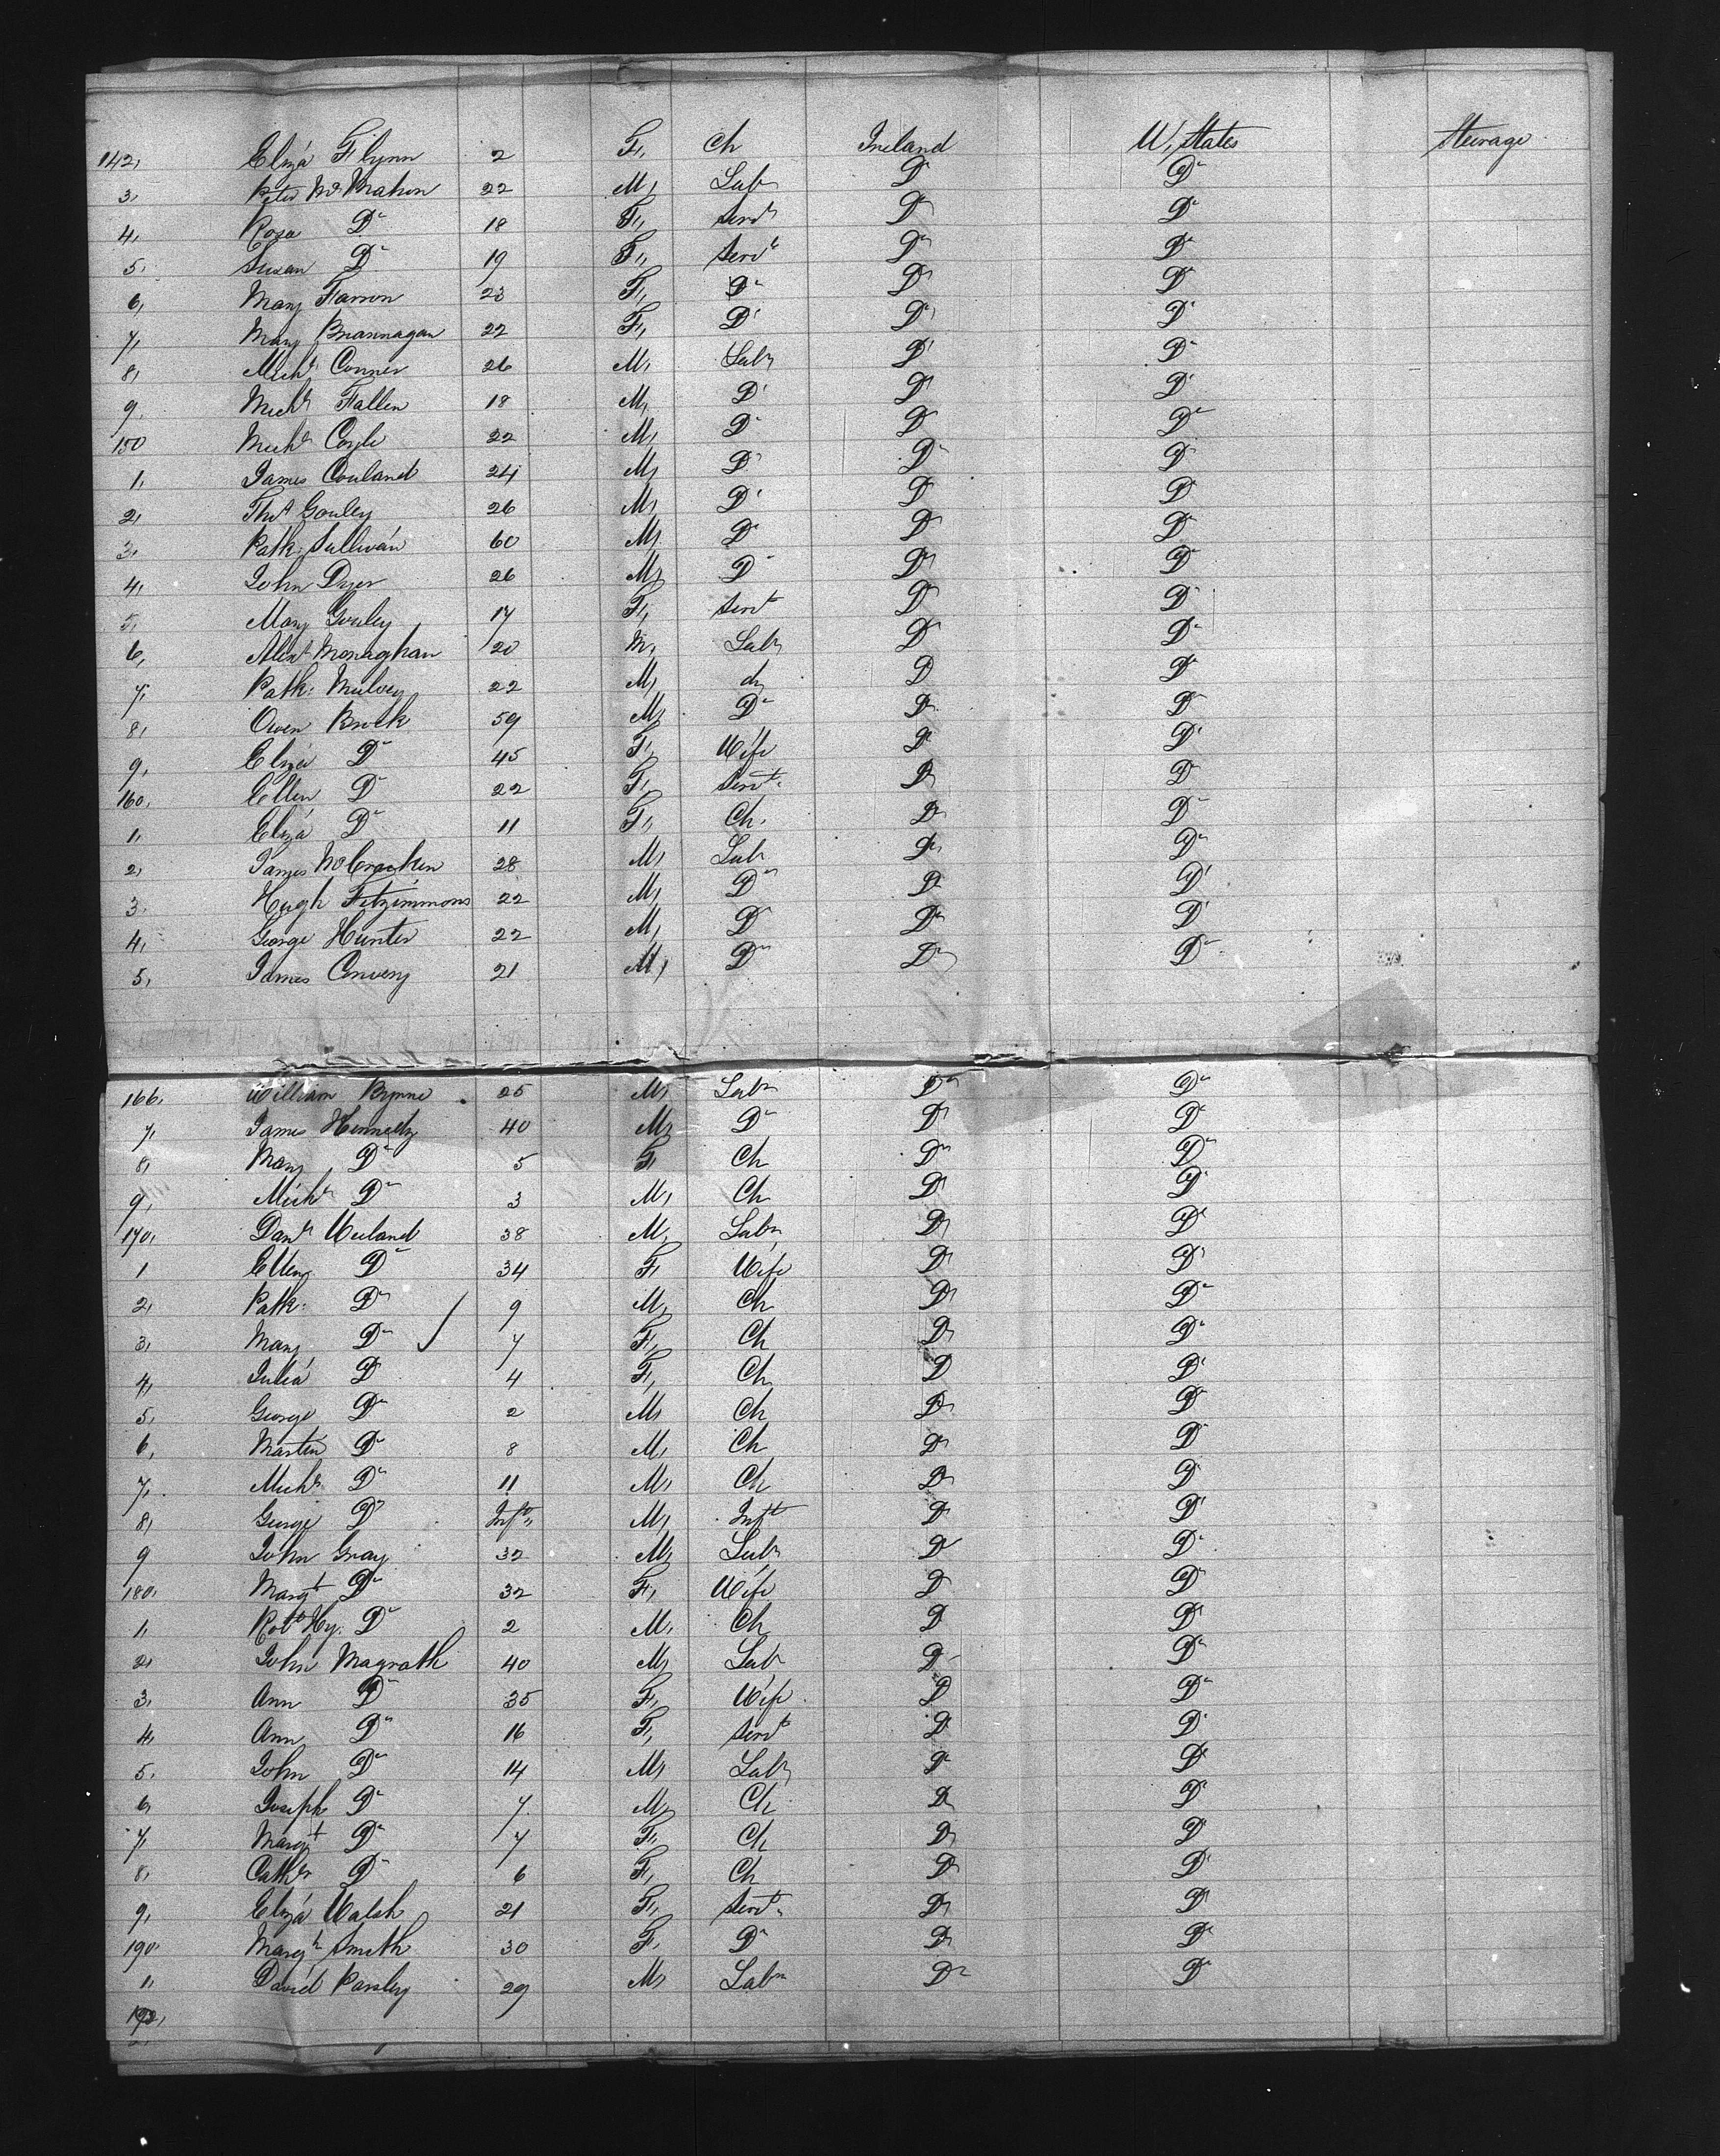 142, Eliza Flynn 2 F, Ch Ireland U, States Steerage
3, Peter McMahon 22 M, Labr Do Do
4, Rosa Do 18 F, Servt Do Do
5, Susan Do 19 F, Servt Do Do
6, Mary Farron 23 F, Do Do Do
7, Mary Brannagan 22 F, Do Do Do
8, Michl Conner 26 M, Labr Do Do
9, Michl Fallen 18 M, Do Do Do
150 Michl Coyle 22 M, Do Do Do
1, James Couland 24 M, Do Do Do
2, Thos Gouley 26 M, Do Do Do
3, Patk: Sullivan 60 M, Do Do Do
4, John Dyer 26 M, Do Do Do
5, Mary Gouley 17 F, Servt Do Do
6, Alexr Monaghan 20 M, Labr Do Do
7, Patk: Mulvey 22 M, do Do Do
8, Owen Brick 59 M, Do Do Do
9, Eliza Do 45 F, Wife Do Do
160, Ellen Do 22 F, Servt Do Do
1, Eliza Do 11 F, Ch, Do Do
2, James McCracken 28 M, Labr Do Do
3, Hugh Fitzimmons 22 M, Do Do Do
4, George Hunter 22 M, Do Do Do
5, James Convery 21 M, Do Do Do
166, William Byrne 25 M, Labr Do Do
7, James Kennedy 40 M, Do Do Do
8, Mary Do 5 F, Ch Do Do
9, Michl Do 3 M, Ch Do Do
170, Danl 38 M, Labr Do Do
1 Ellen Do 34 F, Wife Do Do
2, Patk: Do 9 M, Ch Do Do
3, Mary Do 7 F, Ch Do Do
4, Julia Do 4 F, Ch Do Do
5, George Do 2 M, Ch Do Do
6, Martin Do 8 M, Ch Do Do
7, Michl Do 11 M, Ch Do Do
8, George Do Inft M, Inft Do Do
9 John Gray 32 M, Labr Do Do
180, Margt Do 32 F, Wife Do Do
1, Robt Hy. Do 2 M, Ch Do Do
2, John Magrath 40 M, Labr Do Do
3, Ann Do 35 F, Wife Do Do
4, Ann Do 16 F, Servt Do Do
5, John Do 14 M, Labr Do Do
6, Joseph Do 7 M, Ch Do Do
7, Margt Do 7 F, Ch Do Do
8, Cathn Do 6 F, Ch Do Do
9, Eliza Walsh 21 F, Servt Do Do
190, Margt Smith 30 F, Do Do Do
1, David Parsley 29 M, Labr Do Do
192,